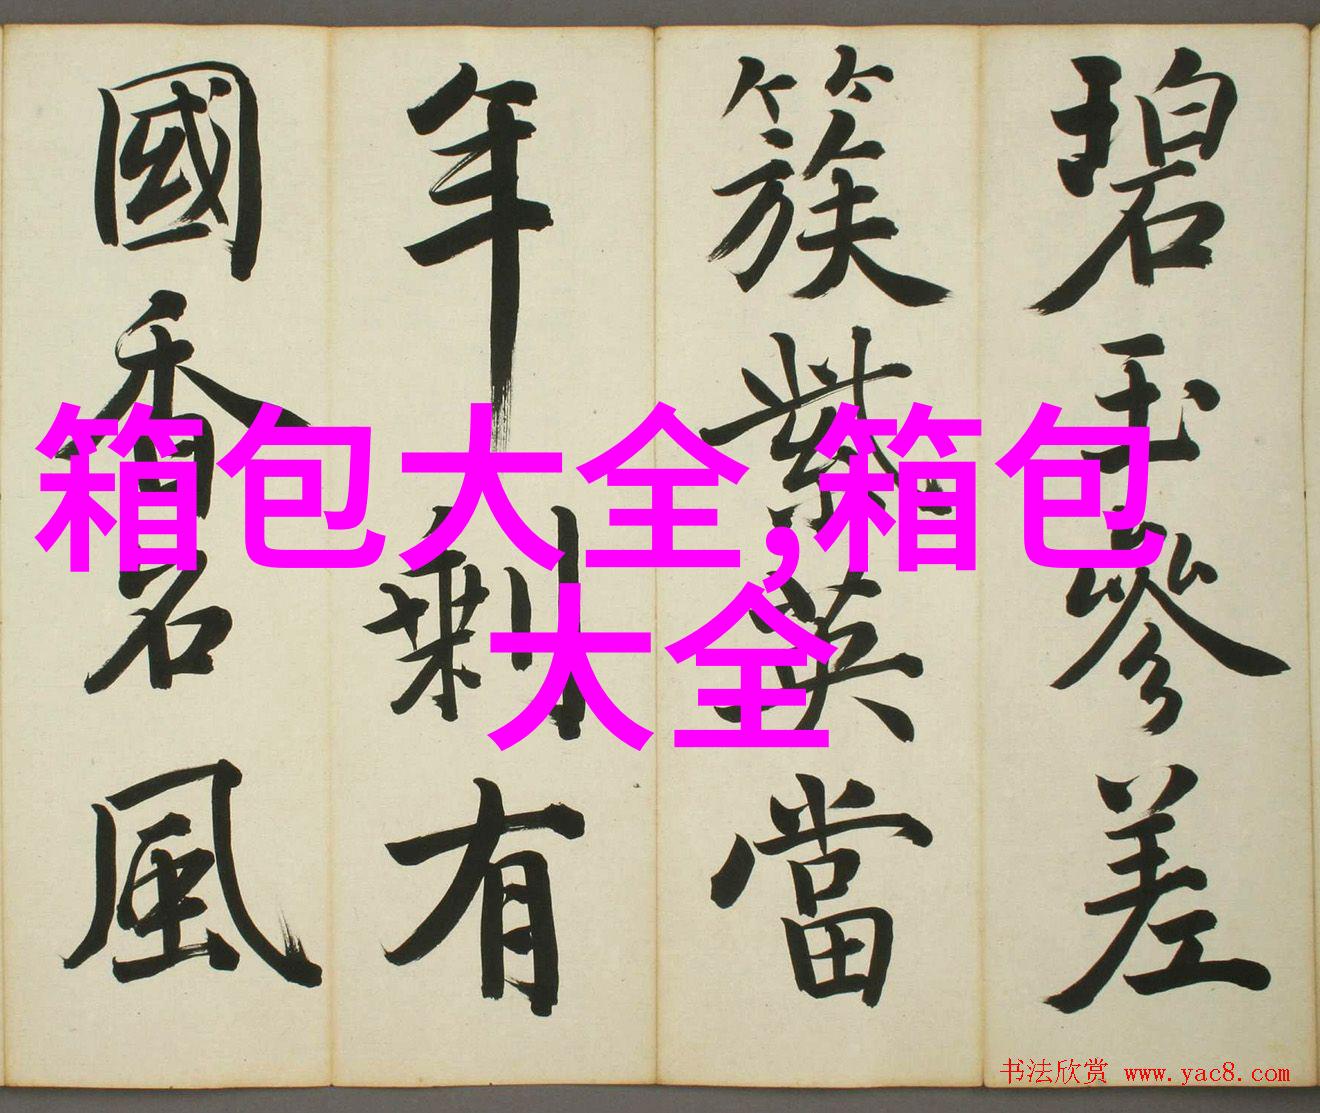 碧玉參差
簇紫英當
年剩有
國香名風
箱包大全,箱包
大全
书法欣赏 www.yac8.com